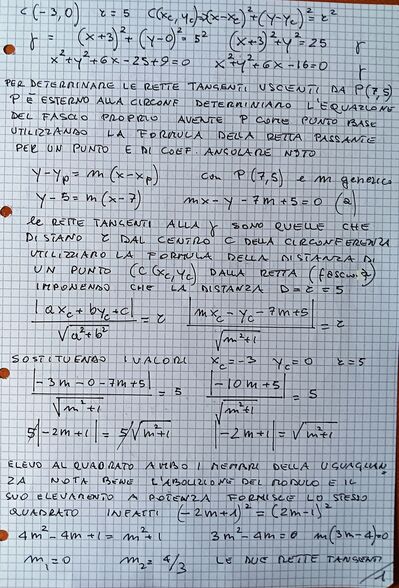 C(-3,0) r=5 C(xc,yc)⇒(x-xc)²+(y-yc)²=r²
γ = (x+3)²+(y-0)²=5² (x+3)²+y²=25 γ
x²+y²+6x-25+9=0 x²+y²+6x-16=0 γ
PER DETERMINARE LE RETTE TANGENTI USCENTI DA P(7,5)
P È ESTERNO ALLA CIRCONF DETERMINIAMO L'EQUAZIONE
DEL FASCIO PROPRIO AVENTE P COME PUNTO BASE
UTILIZZANDO LA FORMULA DELLA RETTA PASSANTE
PER UN PUNTO E DI COEF. ANGOLARE NOTO
y-yp=m(x-xp) con P(7,5) e m generico
y-5=m(x-7) mx-y-7m+5=0 (a)
le RETTE TANGENTI ALLA γ SONO QUELLE CHE
DISTANO r DAL CENTRO C DELLA CIRCONFERENZA
UTILIZZIAMO LA FORMULA DELLA DISTANZA DI
UN PUNTO (C(xc,yc) DALLA RETTA (fascio a)
IMPONENDO CHE LA DISTANZA D=r=5
|axc+byc+c|/√(a²+b²) = r |mxc-yc-7m+5|/√(m²+1) = r
SOSTITUENDO I VALORI xc=-3 yc=0 r=5
|-3m-0-7m+5|/√(m²+1) = 5 |-10m+5|/√(m²+1) = 5
5|-2m+1|=5√(m²+1) |-2m+1|=√(m²+1)
ELEVO AL QUADRATO AMBO I MEMBRI DELLA UGUAGLIAN
ZA NOTA BENE L'ABOLIZIONE DEL MODULO E IL
SUO ELEVAMENTO A POTENZA FORNISCE LO STESSO
QUADRATO INFATTI (-2m+1)²=(2m-1)²
4m²-4m+1=m²+1 3m²-4m=0 m(3m-4)=0
m₁=0 m₂=4/3 LE DUE RETTE TANGENTI
1